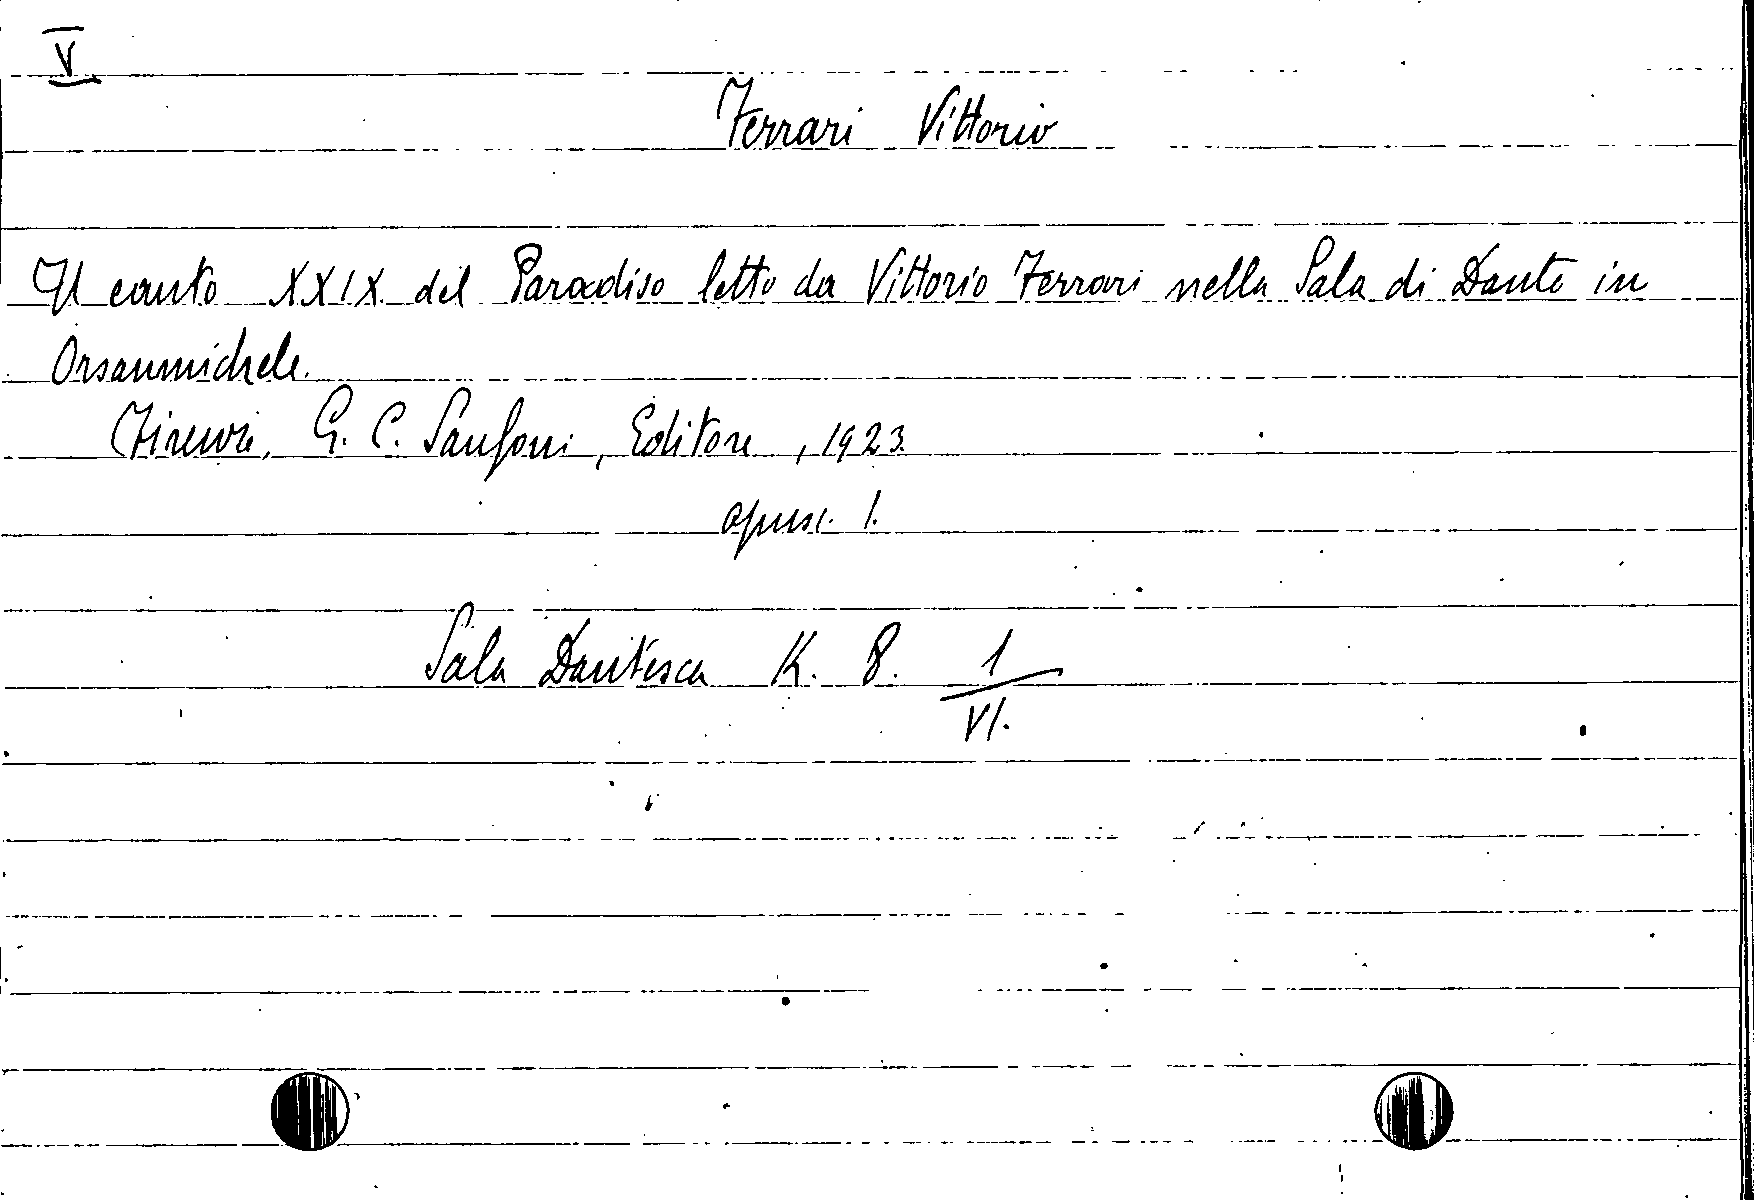 V
Ferrari Vittorio
Il canto XXIX del Paradiso letto da Vittorio Ferrari nella Sala di Dante in
Orsanmichele.
Firenze, G. C. Sansoni, Editore, 1923.
opusc. 1.
Sala Dantesca K. 8. 1
VI.